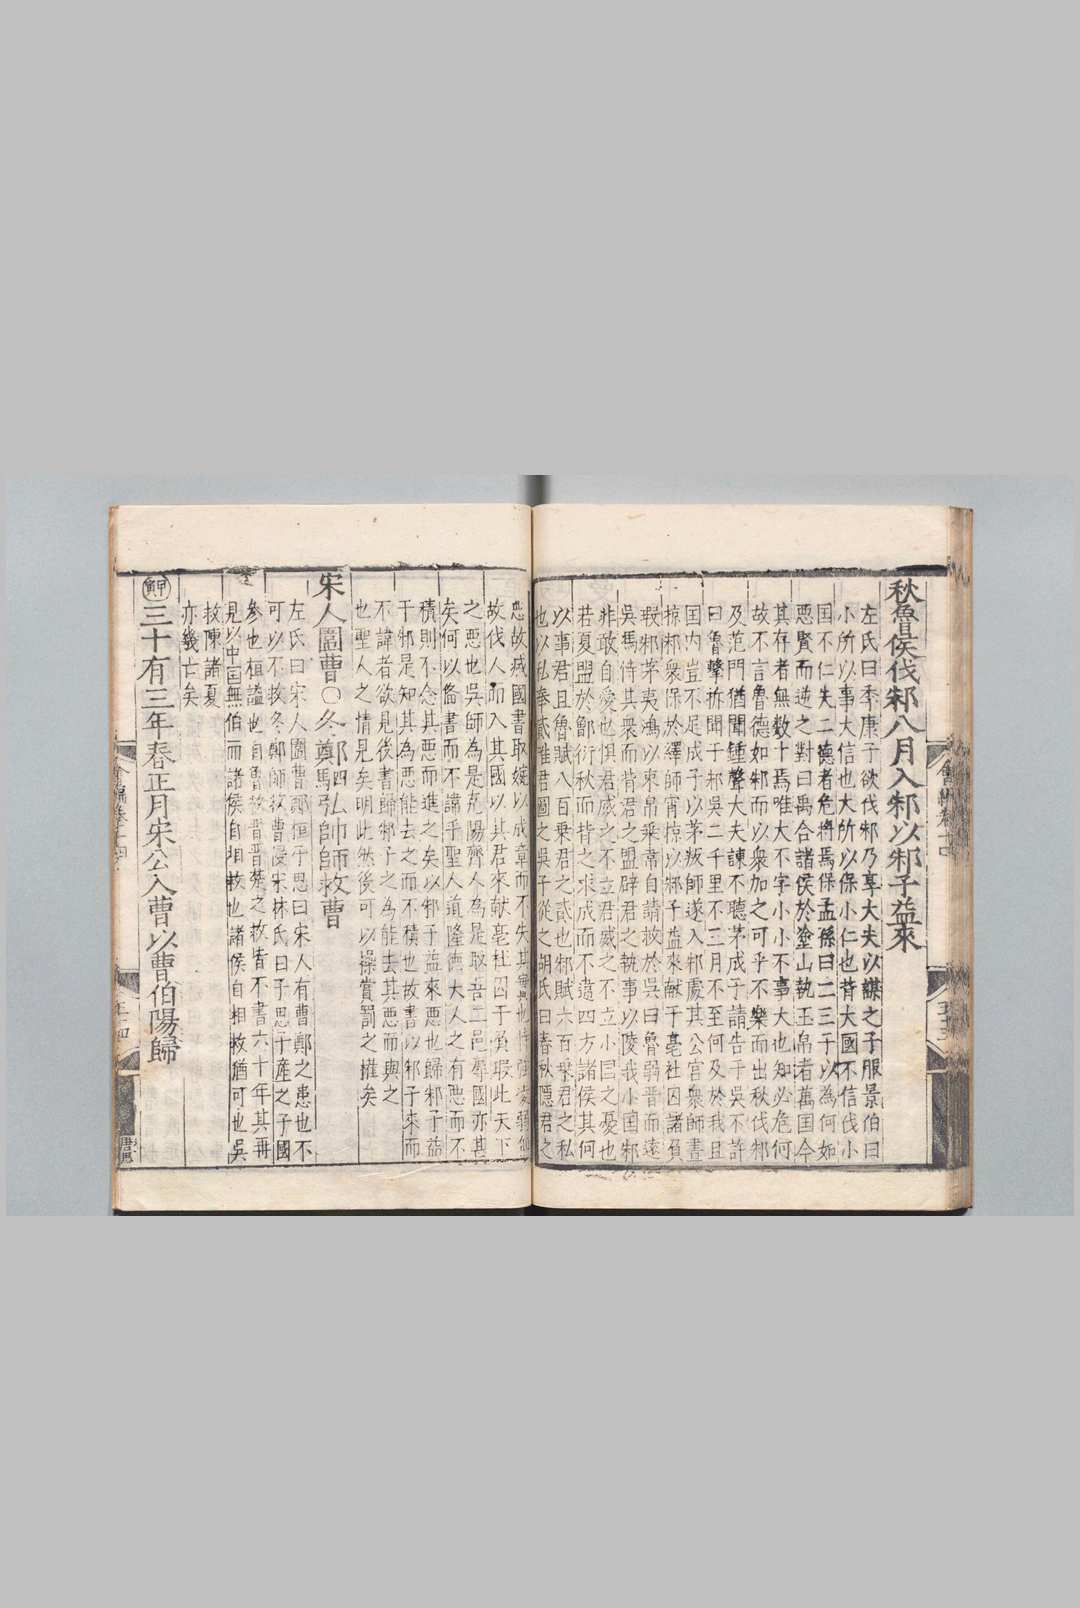 秋魯侯伐邾八月入邾以邾子益來
左氏曰季康子欲伐邾乃享大夫以謀之子服景伯曰
小所以事大信也大所以保小仁也背大國不信伐小
国不仁失二德者危將焉保孟孫曰二三子以為何如
惡賢而逆之對曰禹合諸侯於塗山執玉帛者萬国今
其存者無數十焉唯大不字小小不事大也知必危何
故不言魯德如邾而以衆加之可乎不樂而出秋伐邾
及范門猶聞鍾聲大夫諫不聽茅成子請告于吳不許
曰魯擊柝聞于邾吳二千里不三月不至何及於我且
国内豈不足成子以茅叛師遂入邾處其公宮衆師晝
掠邾衆保於繹師宵掠以邾子益來献于亳社囚諸負
瑕邾茅夷鴻以束帛乘韋自請救於吳曰魯弱晋而遠
吳馮恃其衆而背君之盟辟君之執事以陵我小国邾
非敢自愛也惧君威之不立君威之不立小国之憂也
若夏盟於鄫衍秋而背之求成而不違四方諸侯其何
以事君且魯賦八百乗君之貳也邾賦六百乗君之私
也以私奉貳唯君圖之吳子從之胡氏曰春秋隱君之
惡故㓕國書取婉以成章而不失其也恃强凌弱無
故伐人而入其國以其君來献亳社囚于負瑕此天下
之惡也吳師為是克陽齊人為是取吾二邑辱國亦甚
矣何以俻書而不諱乎聖人道隆德大人之有惡而不
積則不念其惡而進之矣以邾子益來惡也歸邾子益
于邾是知其為惡能去之而不積也故書以邾子來而
不諱者欲見後書歸邾子之為能去其惡而與之
也聖人之情見矣明此然後可以操賞罰之㩲矣
宋人圍曹○冬鄭駟弘帥師救曹
左氏曰宋人圍曹鄭桓子思曰宋人有曹鄭之患也不
可以不救冬鄭師救曹侵宋林氏曰子思子産之子國
參也桓謚也自魯救晋晋蔡之故皆不書六十年其再
見以中国無伯而諸侯自相救也諸侯自相救猶可也吳
救陳諸夏
亦幾亡矣
三十有三年春正月宋公入曹以曹伯陽歸